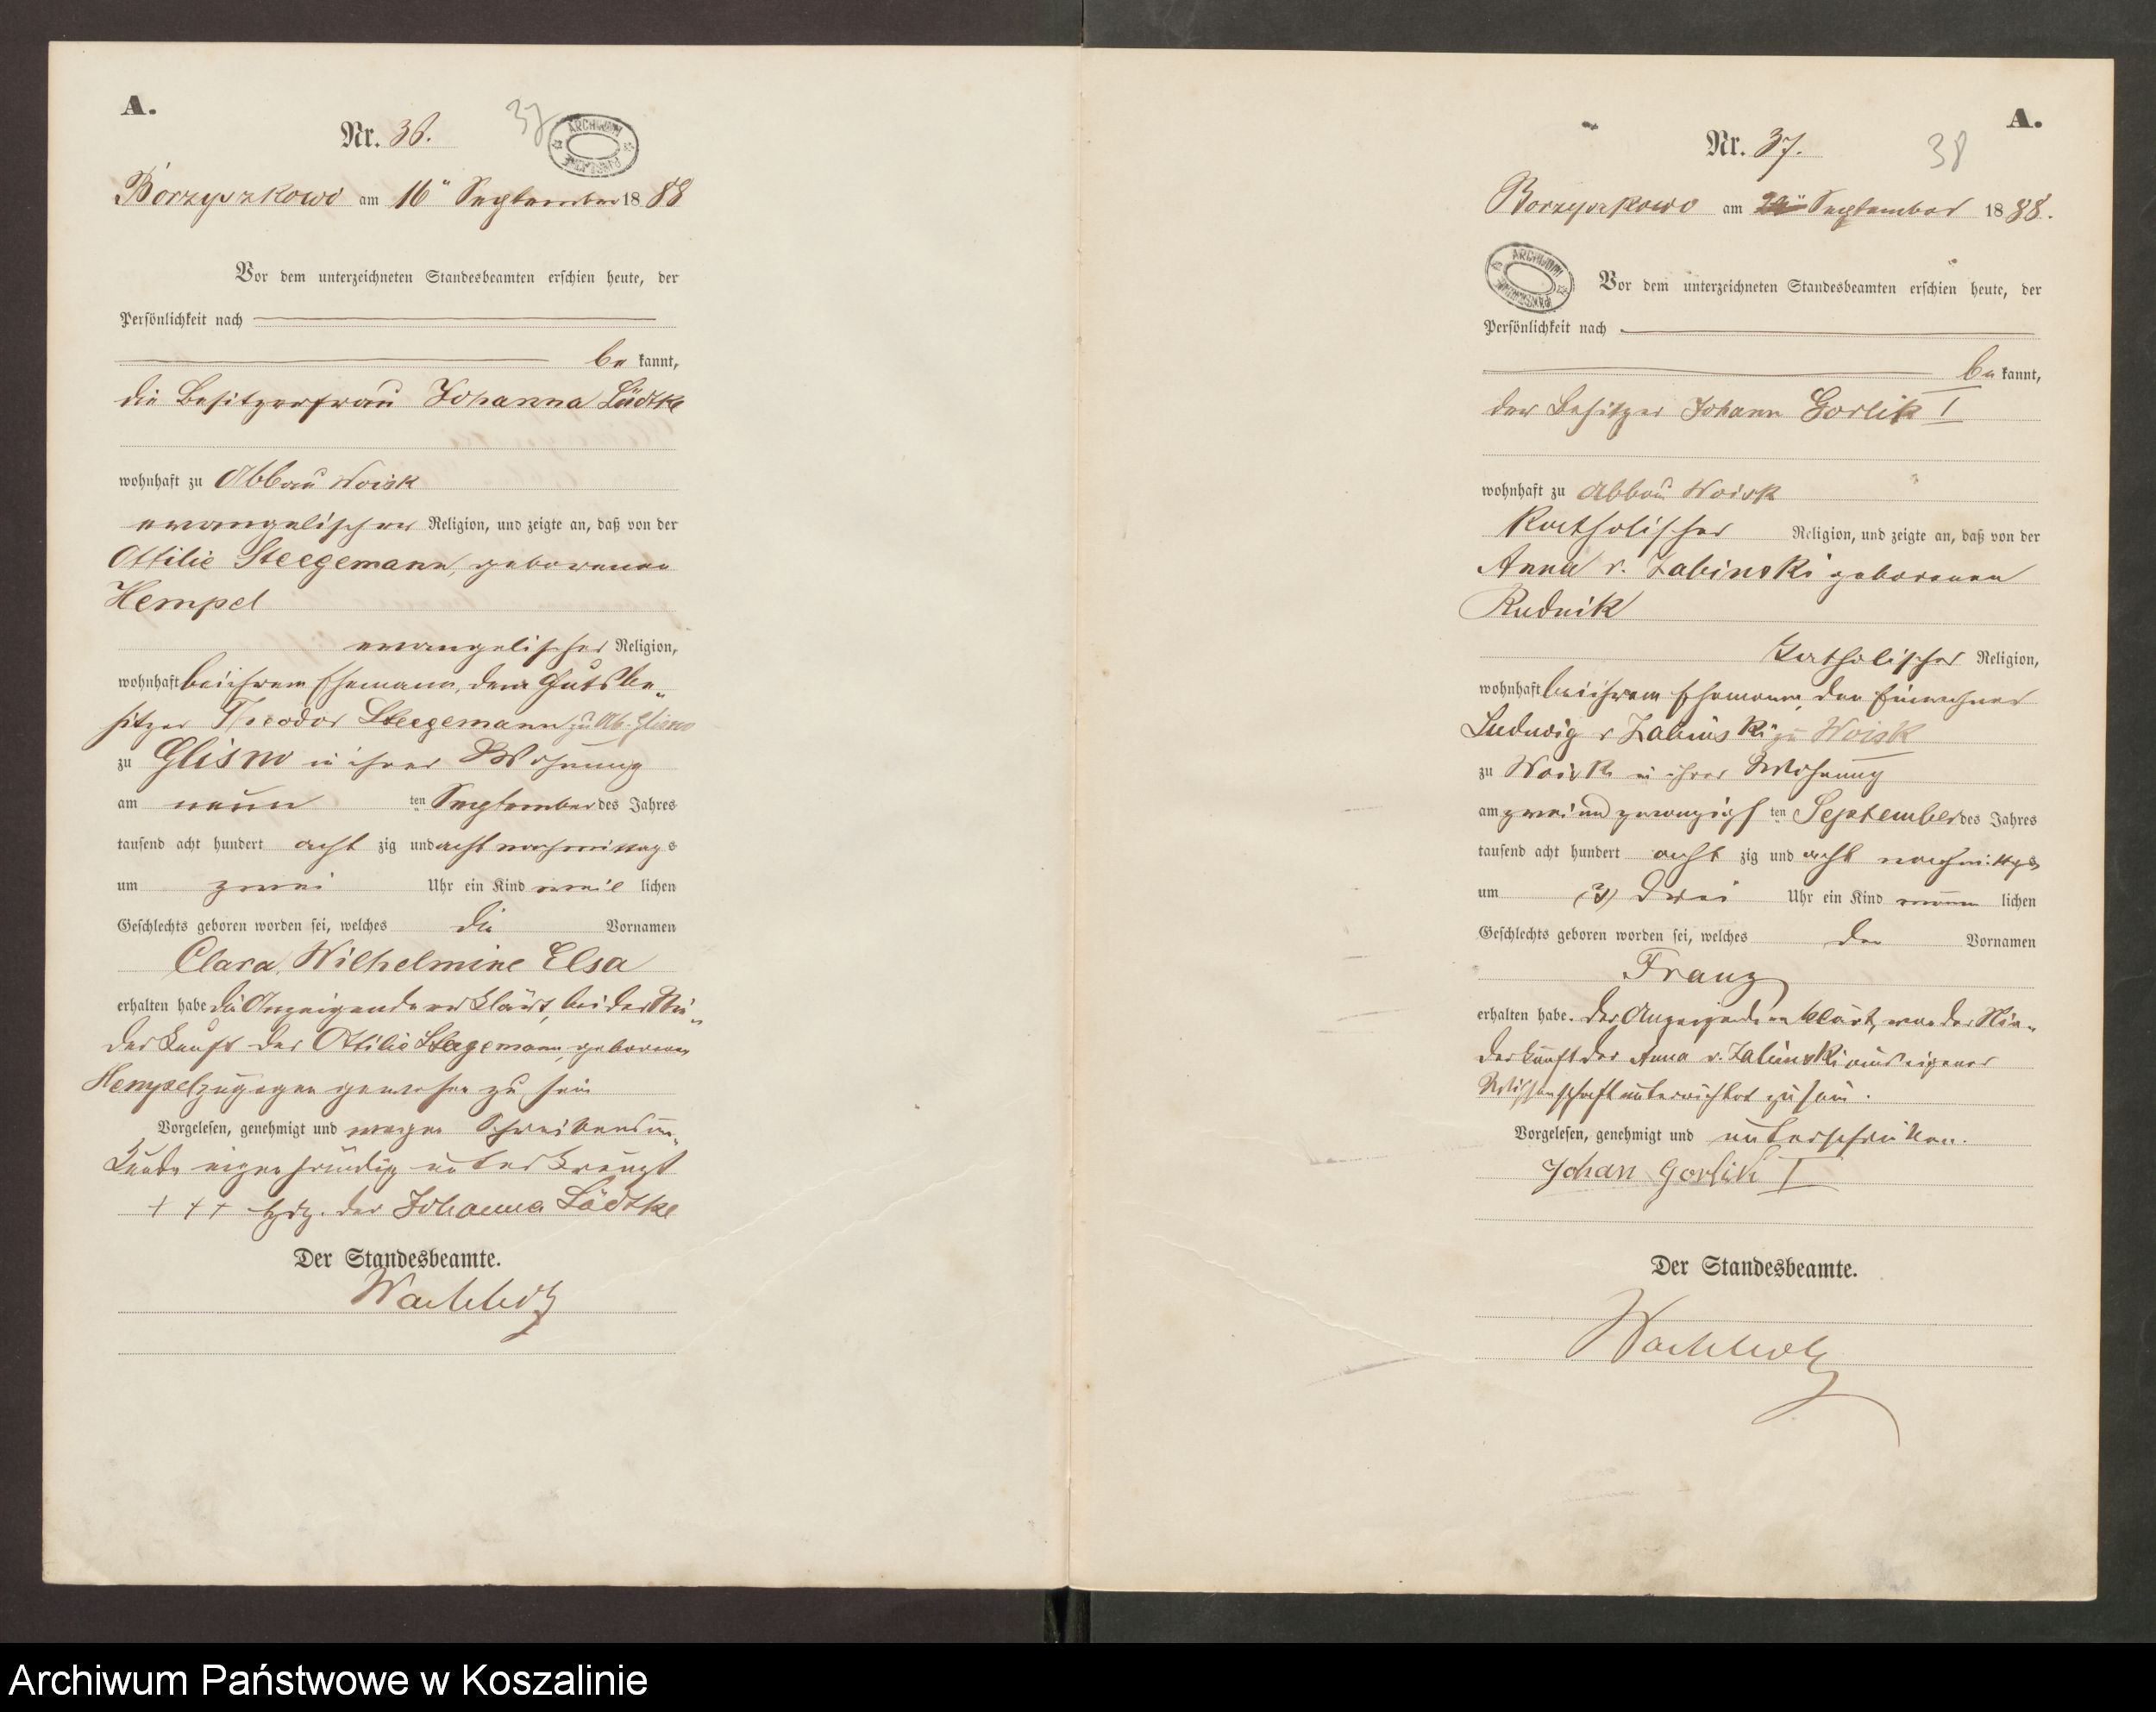 A.
Nr. 36.
37
ARCHIWUM
Borzyszkowo am 16ten September 1888
Vor dem unterzeichneten Standesbeamten erschien heute, der
Persönlichkeit nach
be kannt,
die Besitzerfrau Johanna Lüdtke
wohnhaft zu Abbau Woisk
evangelischer Religion, und zeigte an, daß von der
Ottilie Steegemann, geborenen
Hempel
evangelischer Religion,
wohnhaft bei ihrem Ehemann, dem Gutsbe-
sitzer Theodor Steegemann zu Ab. Glisno
zu Glisno in ihrer Wohnung
am neun ten September des Jahres
tausend acht hundert acht zig und acht nachmittags
um zwei Uhr ein Kind weib lichen
Geschlechts geboren worden sei, welches die Vornamen
Clara, Wilhelmine Elsa
erhalten habe die Anzeigende erklärt, bei der Nie-
derkunft der Ottilie Steegemann, geborenen
Hempel zugegen gewesen zu sein
Vorgelesen, genehmigt und wegen Schreibensun-
kunde eigenhändig unterkreuzt
+ + + hdz. der Johanna Lüdtke
Der Standesbeamte.
Wachholz
A.
Nr. 37.
38
Borzyszkowo am September 1888.
ARCHIWUM
Vor dem unterzeichneten Standesbeamten erschien heute, der
Persönlichkeit nach
be kannt,
der Besitzer Johann Gorlik I
wohnhaft zu Abbau Woisk
Katholischer Religion, und zeigte an, daß von der
Anna v. Zabinski geborenen
Rudnik
Katholischer Religion,
wohnhaft bei ihrem Ehemann, den Einwohner
Ludwig v Zabinski zu Woisk
zu Woisk in ihrer Wohnung
am zwei und zwanzigs ten September des Jahres
tausend acht hundert acht zig und acht nachmittags
um (3) drei Uhr ein Kind männ lichen
Geschlechts geboren worden sei, welches den Vornamen
Franz
erhalten habe. Der Anzeigende erklärt, von der Nie-
derkunft der Anna v. Zabinski aus eigener
Wissenschaft unterrichtet zu sein.
Vorgelesen, genehmigt und unterschrieben.
Johan Gorlik I
Der Standesbeamte.
Wachholz
Archiwum Państwowe w Koszalinie